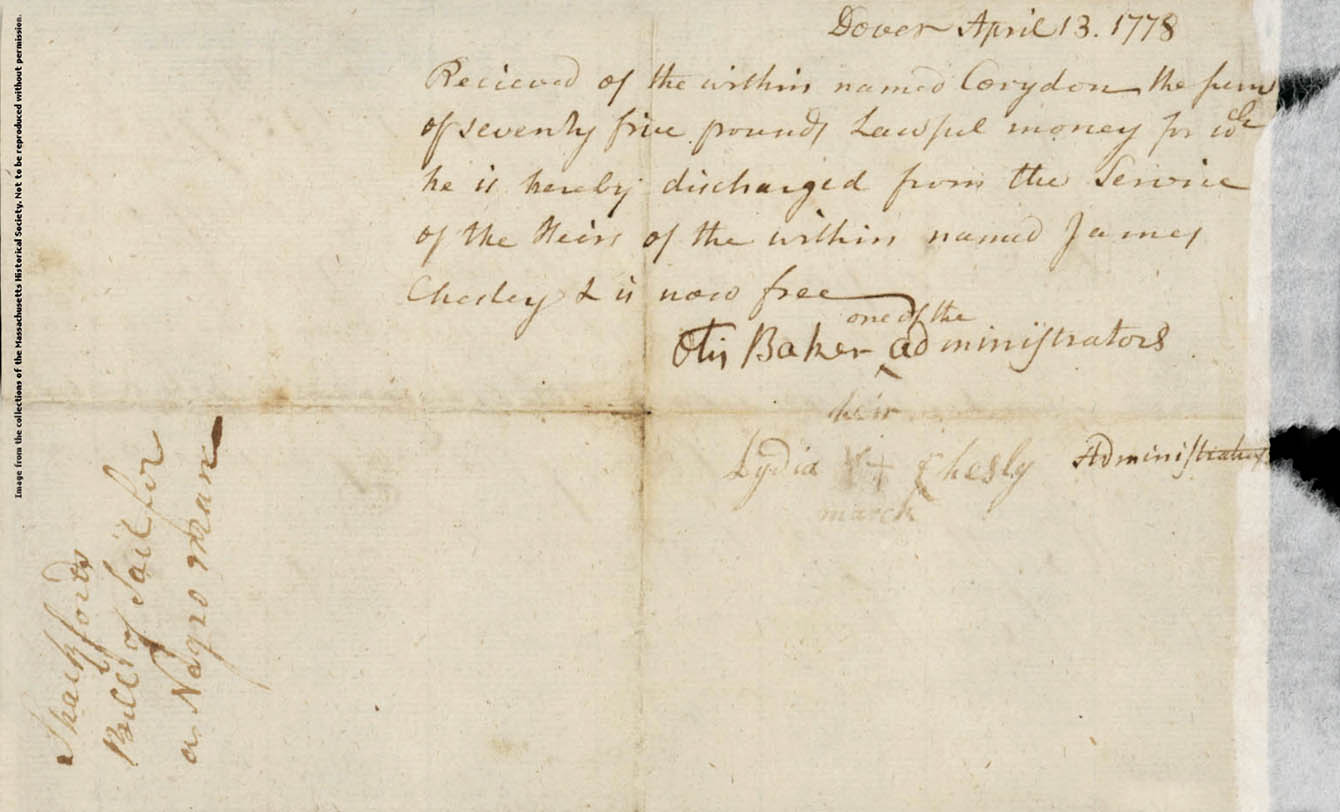 Dover April 13. 1778
Recieved of the within named Corydon the sum
of seventy five pounds Lawful money for wch
he is hereby discharged from the Service
of the Heirs of the within named James
Chesley & is now free
one of the
Otis Baker ^ administrators
heir
Lydia + Chesly Administratux
marck
Shackfords
Bill of Sail for
a Negro man
Image from the collections of the Massachusetts Historical Society. Not to be reproduced without permission.